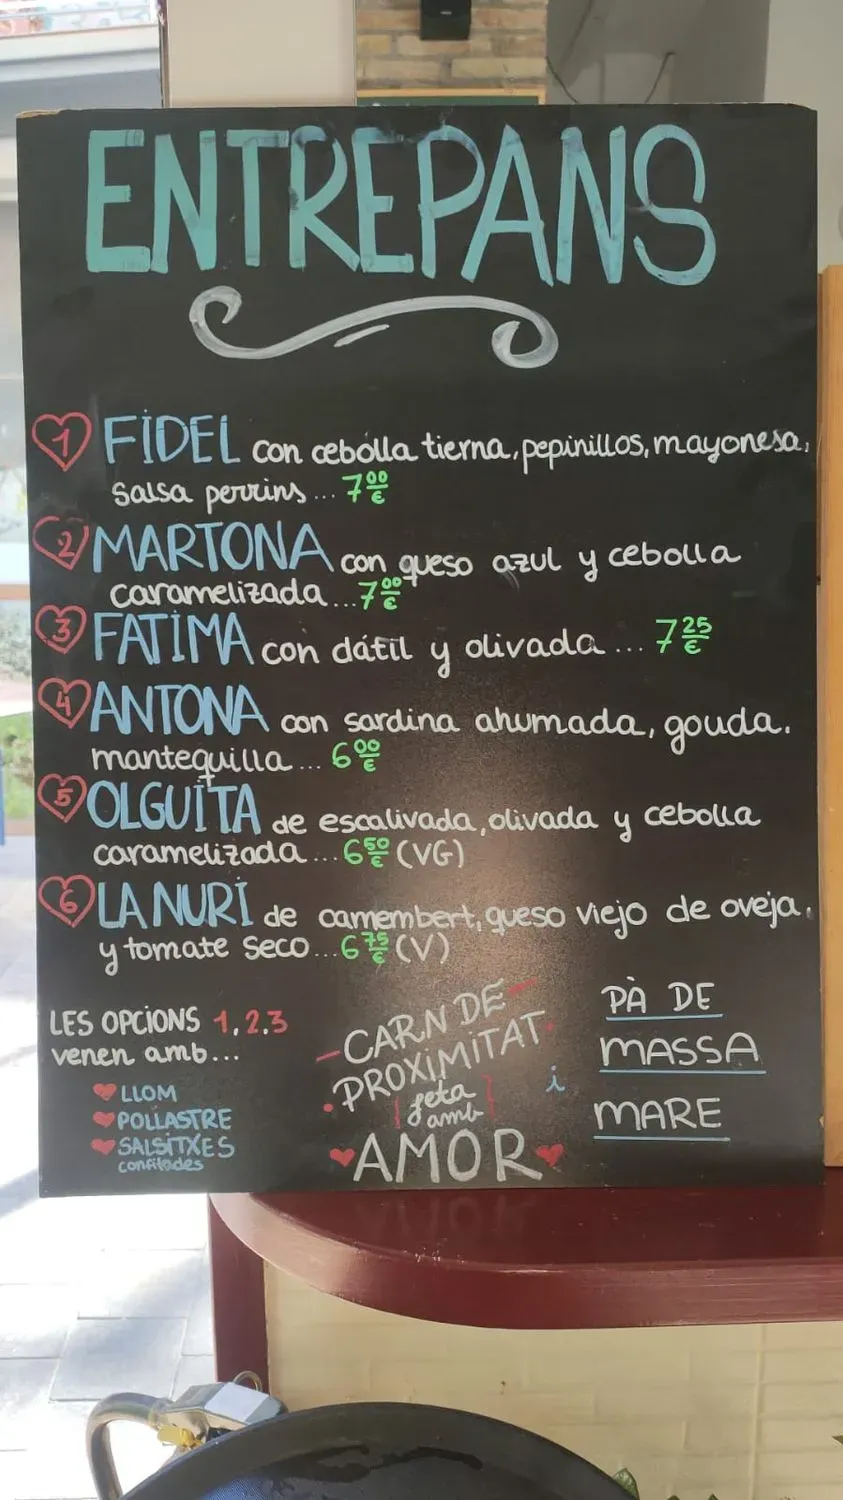 ENTREPANS
1 FIDEL con cebolla tierna, pepinillos, mayonesa,
salsa perrins... 7 00 €
2 MARTONA con queso azul y cebolla
caramelizada... 7 00 €
3 FATIMA con dátil y olivada... 7 25 €
4 ANTONA con sardina ahumada, gouda.
mantequilla... 6 00 €
5 OLGUITA de escalivada, olivada y cebolla
caramelizada... 6 50 € (VG)
6 LA NURI de camembert, queso viejo de oveja.
y tomate seco... 6 75 € (V)
LES OPCIONS 1, 2, 3
venen amb...
LLOM
POLLASTRE
SALSITXES
confitades
CARN DE
PROXIMITAT
feta
amb
AMOR
i
PÀ DE
MASSA
MARE